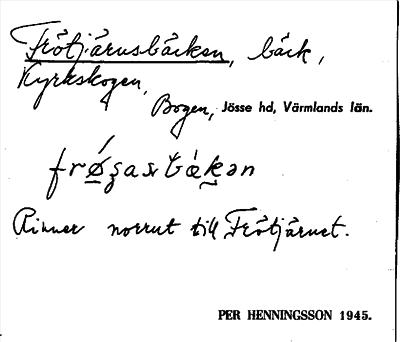 Frötjärnsbäcken, bäck,
Kyrkskogen,
Bogen, Jösse hd, Värmlands län.
Rinner norrut till Frötjärnet.
PER HENNINGSSON 1945.